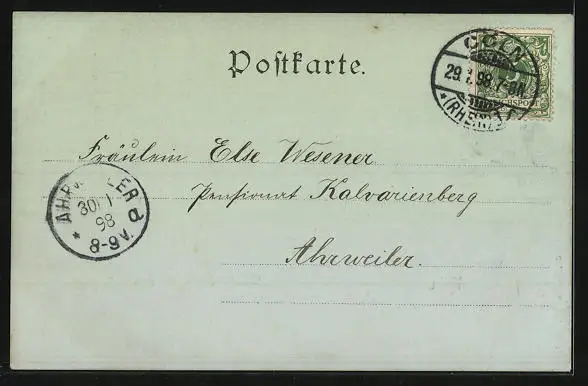 Postkarte.
CÖLN
29.1.98.7-8N.
*(RHEIN)1 f
REICHSPOST
Fräulein Else Wesener
Pensionat Kalvarienberg
Ahrweiler.
AHRWEILER
30 1
98
8-9V.
* d